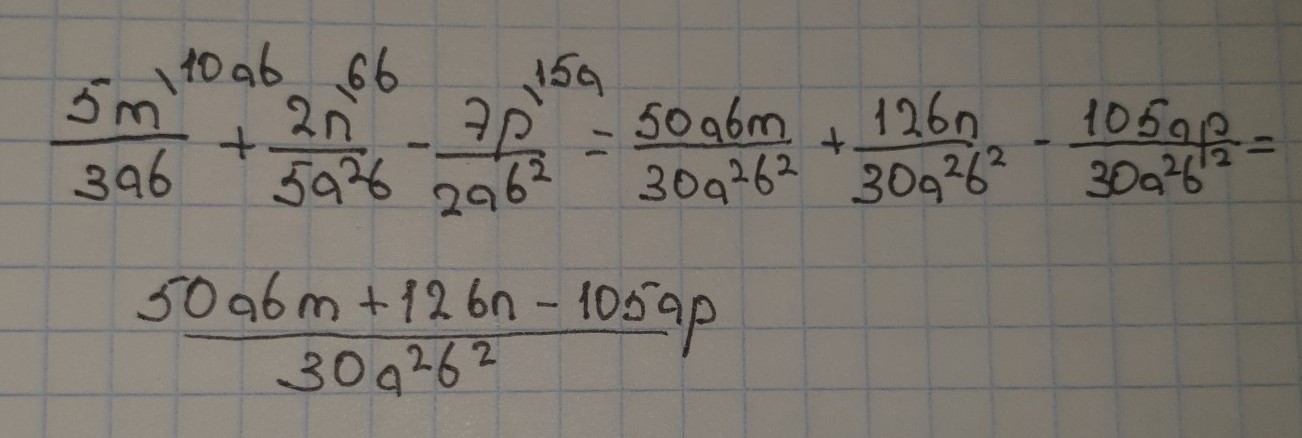 5m\10ab/3ab + 2n\6b/5a²b - 7p\15a/2ab² = 50abm/30a²b² + 12bn/30a²b² - 105ap/30a²b² =
50abm + 12bn - 105ap/30a²b²